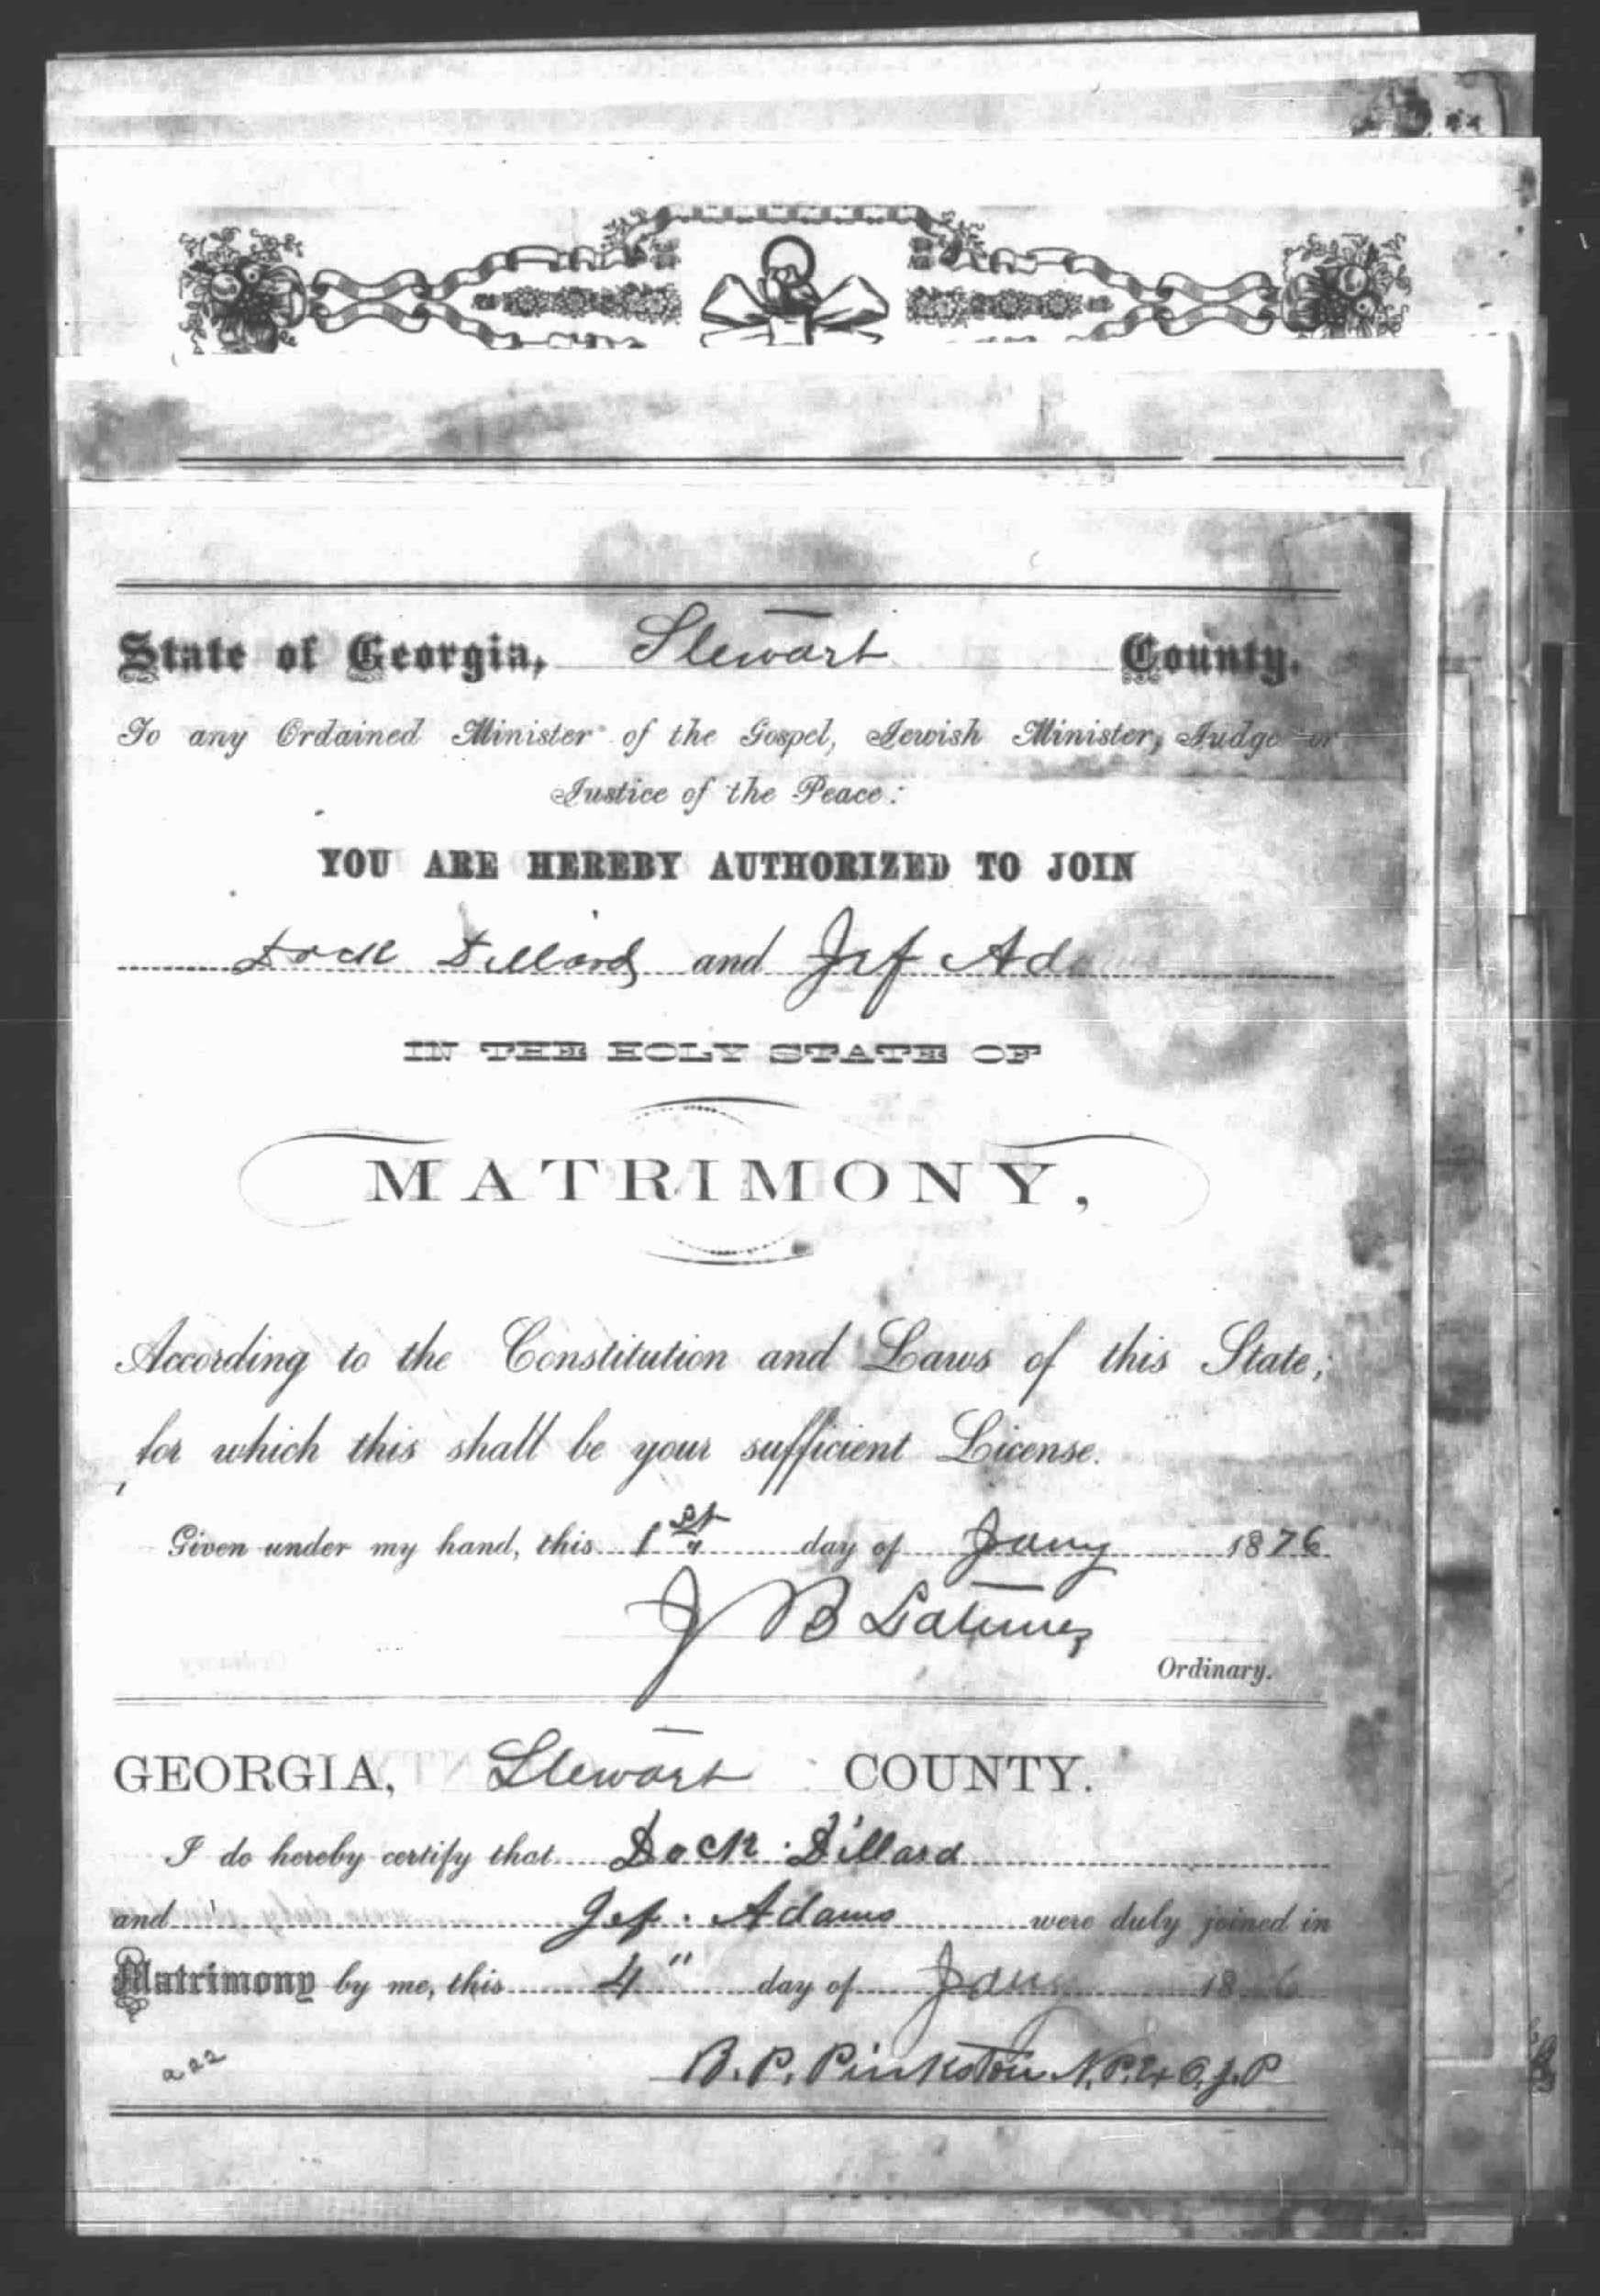 State of Georgia, Stewart County.
To any Ordained Minister of the Gospel, Jewish Minister, Judge or
Justice of the Peace:
YOU ARE HEREBY AUTHORIZED TO JOIN
Dock Dillard and Jef Ad
IN THE HOLY STATE OF
MATRIMONY,
According to the Constitution and Laws of this State;
for which this shall be your sufficient License.
Given under my hand, this 1st day of Jany 1876
J B Latimer
Ordinary.
GEORGIA, Stewart COUNTY.
I do hereby certify that Dock Dillard
and Jef. Adams were duly joined in
Matrimony by me, this 4" day of Jany 18 6
222
B. P. Pinkston N. P. Ex O. J. P